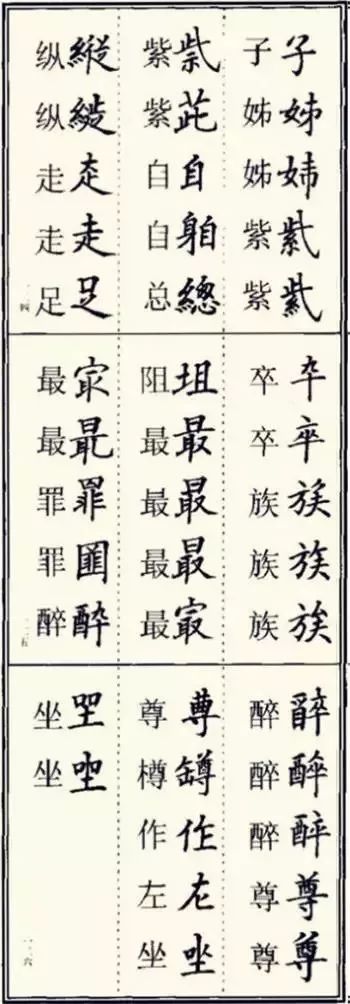 子 子
姊 姊
姊 姉
紫 紫
紫 紫
紫 紫
紫 茈
自 自
自
总 總
纵 縱
纵 縦
走 赱
走 走
足 足
卒 卆
卒 卒
族 族
族 族
族 族
阻
最 最
最 最
最 最
最 㝡
最 㝡
最 最
罪 罪
罪
醉 酔
醉 醉
醉 醉
醉 酔
尊 尊
尊 尊
尊 尊
樽 罇
作 作
左 左
坐 坐
坐 坐
坐 坐